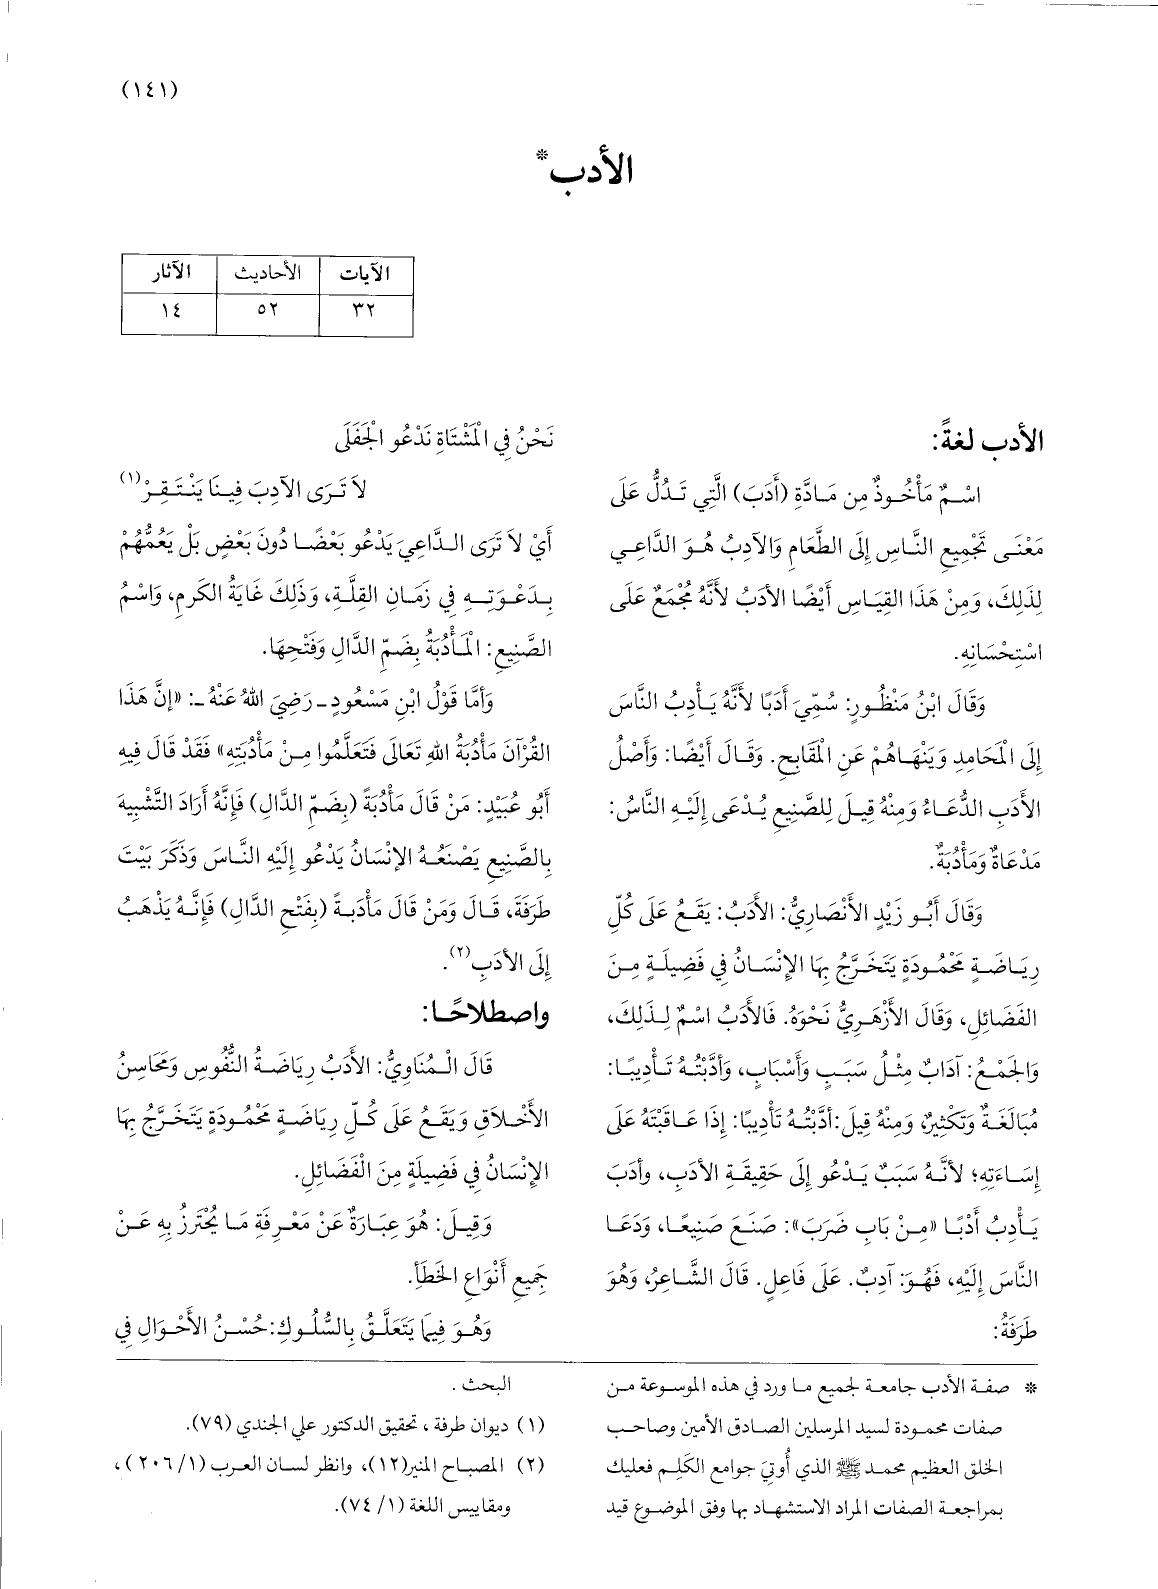 (١٤١)
الأدب*
الآيات الأحاديث الآثار
٣٢ ٥٢ ١٤
الأدب لغةً:
اسْمٌ مَأْخُوذٌ مِن مَادَّةِ (أَدَبَ) الَّتِي تَدُلُّ عَلَى
مَعْنَى تَجْمِيعِ النَّاسِ إِلَى الطَّعَامِ وَالآدِبُ هُوَ الدَّاعِي
لِذَلِكَ، وَمِنْ هَذَا القِيَاسِ أَيْضًا الأَدَبُ لأَنَّهُ مُجْمَعٌ عَلَى
اسْتِحْسَانِهِ.
وَقَالَ ابْنُ مَنْظُورٍ: سُمِّيَ أَدَبًا لأَنَّهُ يَأْدِبُ النَّاسَ
إِلَى الْمَحَامِدِ وَيَنْهَاهُمْ عَنِ الْمَقَابِحِ. وَقَالَ أَيْضًا: وَأَصْلُ
الأَدَبِ الدُّعَاءُ وَمِنْهُ قِيلَ لِلصَّنِيعِ يُدْعَى إِلَيْهِ النَّاسُ:
مَدْعَاةٌ وَمَأْدُبَةٌ.
وَقَالَ أَبُو زَيْدٍ الأَنْصَارِيُّ: الأَدَبُ: يَقَعُ عَلَى كُلِّ
رِيَاضَةٍ مَحْمُودَةٍ يَتَخَرَّجُ بِهَا الإِنْسَانُ فِي فَضِيلَةٍ مِنَ
الفَضَائِلِ، وَقَالَ الأَزْهَرِيُّ نَحْوَهُ. فَالأَدَبُ اسْمٌ لِذَلِكَ،
وَالجَمْعُ: آدَابٌ مِثْلُ سَبَبٍ وَأَسْبَابٍ، وَأَدَّبْتُهُ تَأْدِيبًا:
مُبَالَغَةٌ وَتَكْثِيرٌ، وَمِنْهُ قِيلَ: أَدَّبْتُهُ تَأْدِيبًا: إِذَا عَاقَبْتَهُ عَلَى
إِسَاءَتِهِ؛ لأَنَّهُ سَبَبٌ يَدْعُو إِلَى حَقِيقَةِ الأَدَبِ، وأَدَبَ
يَأْدِبُ أَدْبًا «مِنْ بَابِ ضَرَبَ»: صَنَعَ صَنِيعًا، وَدَعَا
النَّاسَ إِلَيْهِ، فَهُوَ: آدِبٌ. عَلَى فَاعِلٍ. قَالَ الشَّاعِرُ، وَهُوَ
طَرَفَةُ:
نَحْنُ فِي الْمَشْتَاةِ نَدْعُو الْجَفَلَى
لاَ تَرَى الآدِبَ فِينَا يَنْتَقِرْ(١)
أَيْ لاَ تَرَى الدَّاعِيَ يَدْعُو بَعْضًا دُونَ بَعْضٍ بَلْ يَعُمُّهُمْ
بِدَعْوَتِهِ فِي زَمَانِ القِلَّةِ، وَذَلِكَ غَايَةُ الكَرمِ، وَاسْمُ
الصَّنِيعِ: الْمَأْدُبَةُ بِضَمِّ الدَّالِ وَفَتْحِهَا.
وَأَمَّا قَوْلُ ابْنِ مَسْعُودٍ - رَضِيَ اللهُ عَنْهُ -: «إِنَّ هَذَا
القُرْآنَ مَأْدُبَةُ اللهِ تَعَالَى فَتَعَلَّمُوا مِنْ مَأْدُبَتِهِ» فَقَدْ قَالَ فِيهِ
أَبُو عُبَيْدٍ: مَنْ قَالَ مَأْدُبَةً (بِضَمِّ الدَّالِ) فَإِنَّهُ أَرَادَ التَّشْبِيهَ
بِالصَّنِيعِ يَصْنَعُهُ الإِنْسَانُ يَدْعُو إِلَيْهِ النَّاسَ وَذَكَرَ بَيْتَ
طَرَفَةَ، قَالَ وَمَنْ قَالَ مَأْدَبةً (بِفَتْحِ الدَّالِ) فَإِنَّهُ يَذْهَبُ
إِلَى الأَدَبِ(٢).
واصطلاحًا:
قَالَ الْمُنَاوِيُّ: الأَدَبُ رِيَاضَةُ النُّفُوسِ وَمَحَاسِنُ
الأَخْلاَقِ وَيَقَعُ عَلَى كُلِّ رِيَاضَةٍ مَحْمُودَةٍ يَتَخَرَّجُ بِهَا
الإِنْسَانُ فِي فَضِيلَةٍ مِنَ الْفَضَائِلِ.
وَقِيلَ: هُوَ عِبَارَةٌ عَنْ مَعْرِفَةِ مَا يُحْتَرزُ بِهِ عَنْ
جَمِيعِ أَنْوَاعِ الخَطَأِ.
وَهُوَ فِيمَا يَتَعَلَّقُ بِالسُّلُوكِ: حُسْنُ الأَحْوَالِ فِي
* صفة الأدب جامعة لجميع ما ورد في هذه الموسوعة من
صفات محمودة لسيد المرسلين الصادق الأمين وصاحب
الخلق العظيم محمد ﷺ الذي أُوتِيَ جوامع الكَلِم فعليك
بمراجعة الصفات المراد الاستشهاد بها وفق الموضوع قيد
البحث .
(١) ديوان طرفة ، تحقيق الدكتور علي الجندي (٧٩).
(٢) المصباح المنير(١٢)، وانظر لسان العرب (١/ ٢٠٦)،
ومقاييس اللغة (١/ ٧٤).